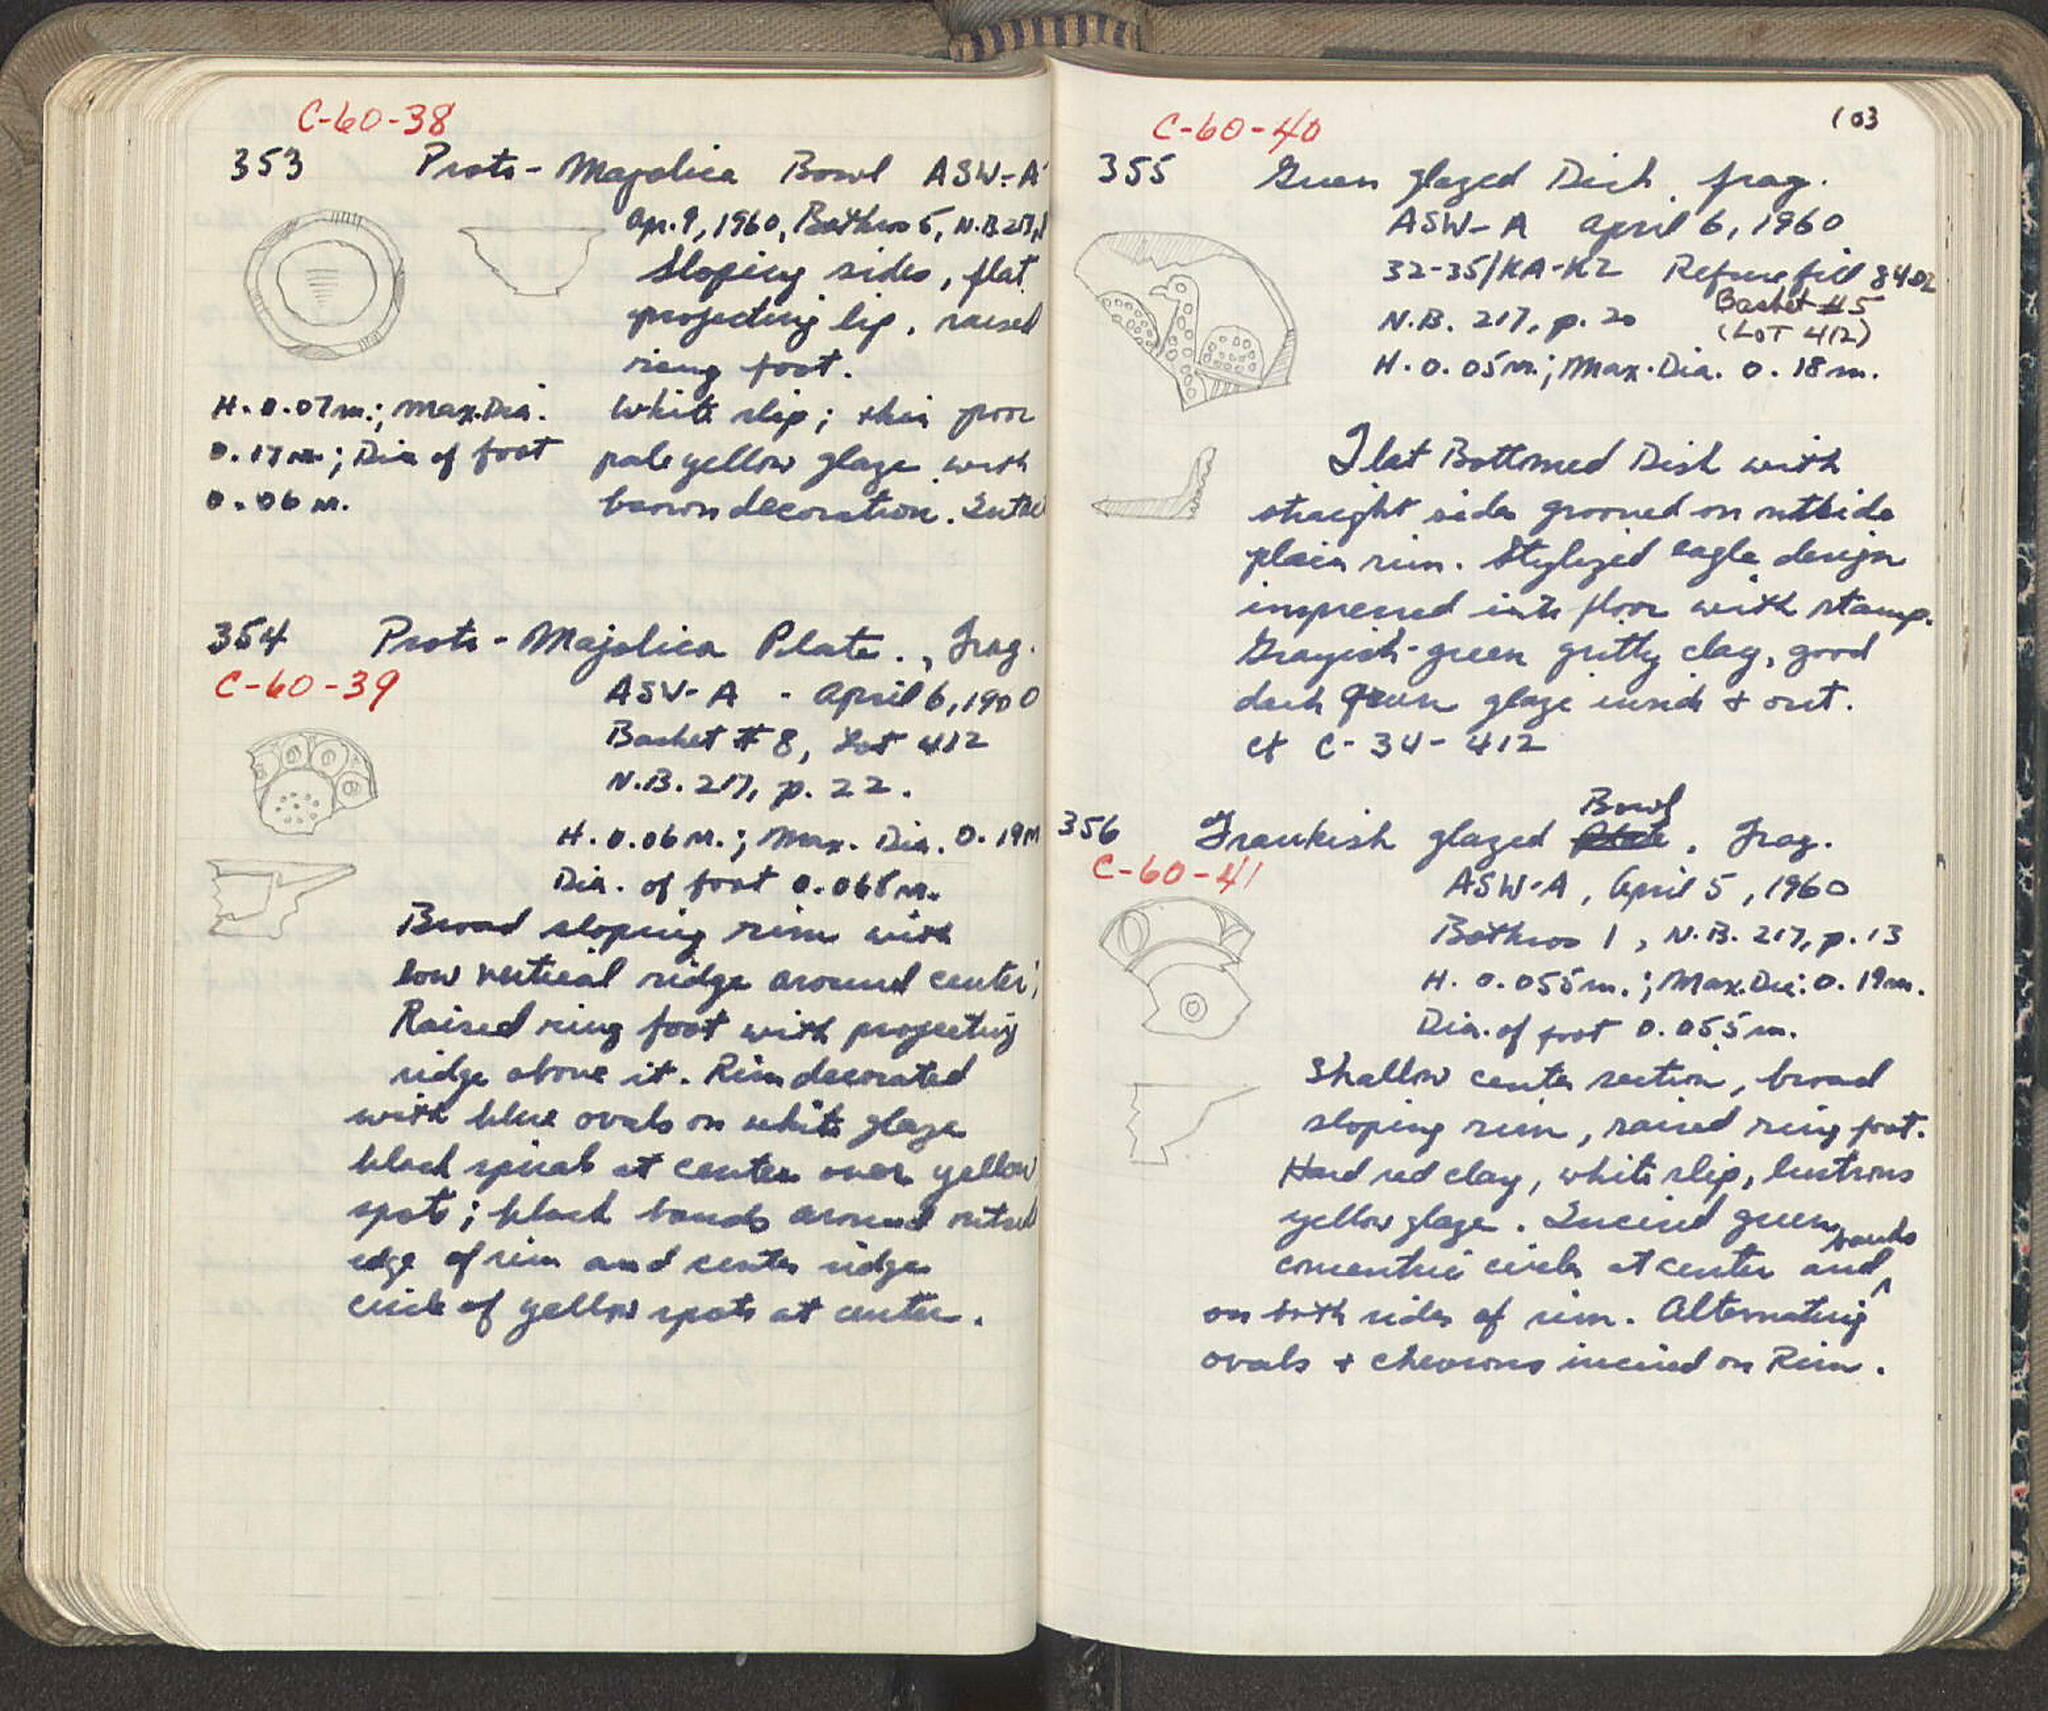 C-60-38
353 Proto-Majolica Bowl ASW-A
Apr. 9, 1960, Bothros 5, N.B. 217,
Sloping sides, flat
projecting lip, raised
ring foot.
H. 0.07m.; Max. Dia.
0.17m.; Dia of foot
0.06m.
White slip; thin poor
pale yellow glaze with
brown decoration.
354 Proto-Majolica Plate., Frag.
C-60-39
ASW-A - April 6, 1960
Basket #8, Lot 412
N.B. 217, p. 22.
H. 0.06m.; Max. Dia. 0.19m
Dia. of foot 0.068m.
Broad sloping rim with
low vertical ridge around center;
Raised ring foot with projecting
ridge above it. Rim decorated
with blue ovals on white glaze
black spirals at center over yellow
spots; black bands around outside
edge of rim and center ridge
circle of yellow spots at center.
103
C-60-40
355 Green glazed Dish, frag.
ASW-A April 6, 1960
32-35/KA-KZ Refuse fill
Basket #5
N.B. 217, p. 20 (LOT 412)
H. 0.05m.; Max. Dia. 0.18m.
Flat Bottomed Dish with
straight sides grooved on outside
plain rim. Stylized eagle design
impressed into floor with stamp.
Grayish-green gritty clay, good
dark green glaze inside & out.
cf C-34-412
Bowl
356 Frankish glazed Plate. Frag.
C-60-41
ASW-A, April 5, 1960
Bothros 1, N.B. 217, p. 13
H. 0.055m.; Max. Dia: 0.19m.
Dia. of foot 0.055m.
Shallow center section, broad
sloping rim, raised ring foot.
Hard red clay, white slip, lustrous
yellow glaze. Incised green
bands
concentric circles at center and ^
on both sides of rim. Alternating
ovals & chevrons incised on Rim.